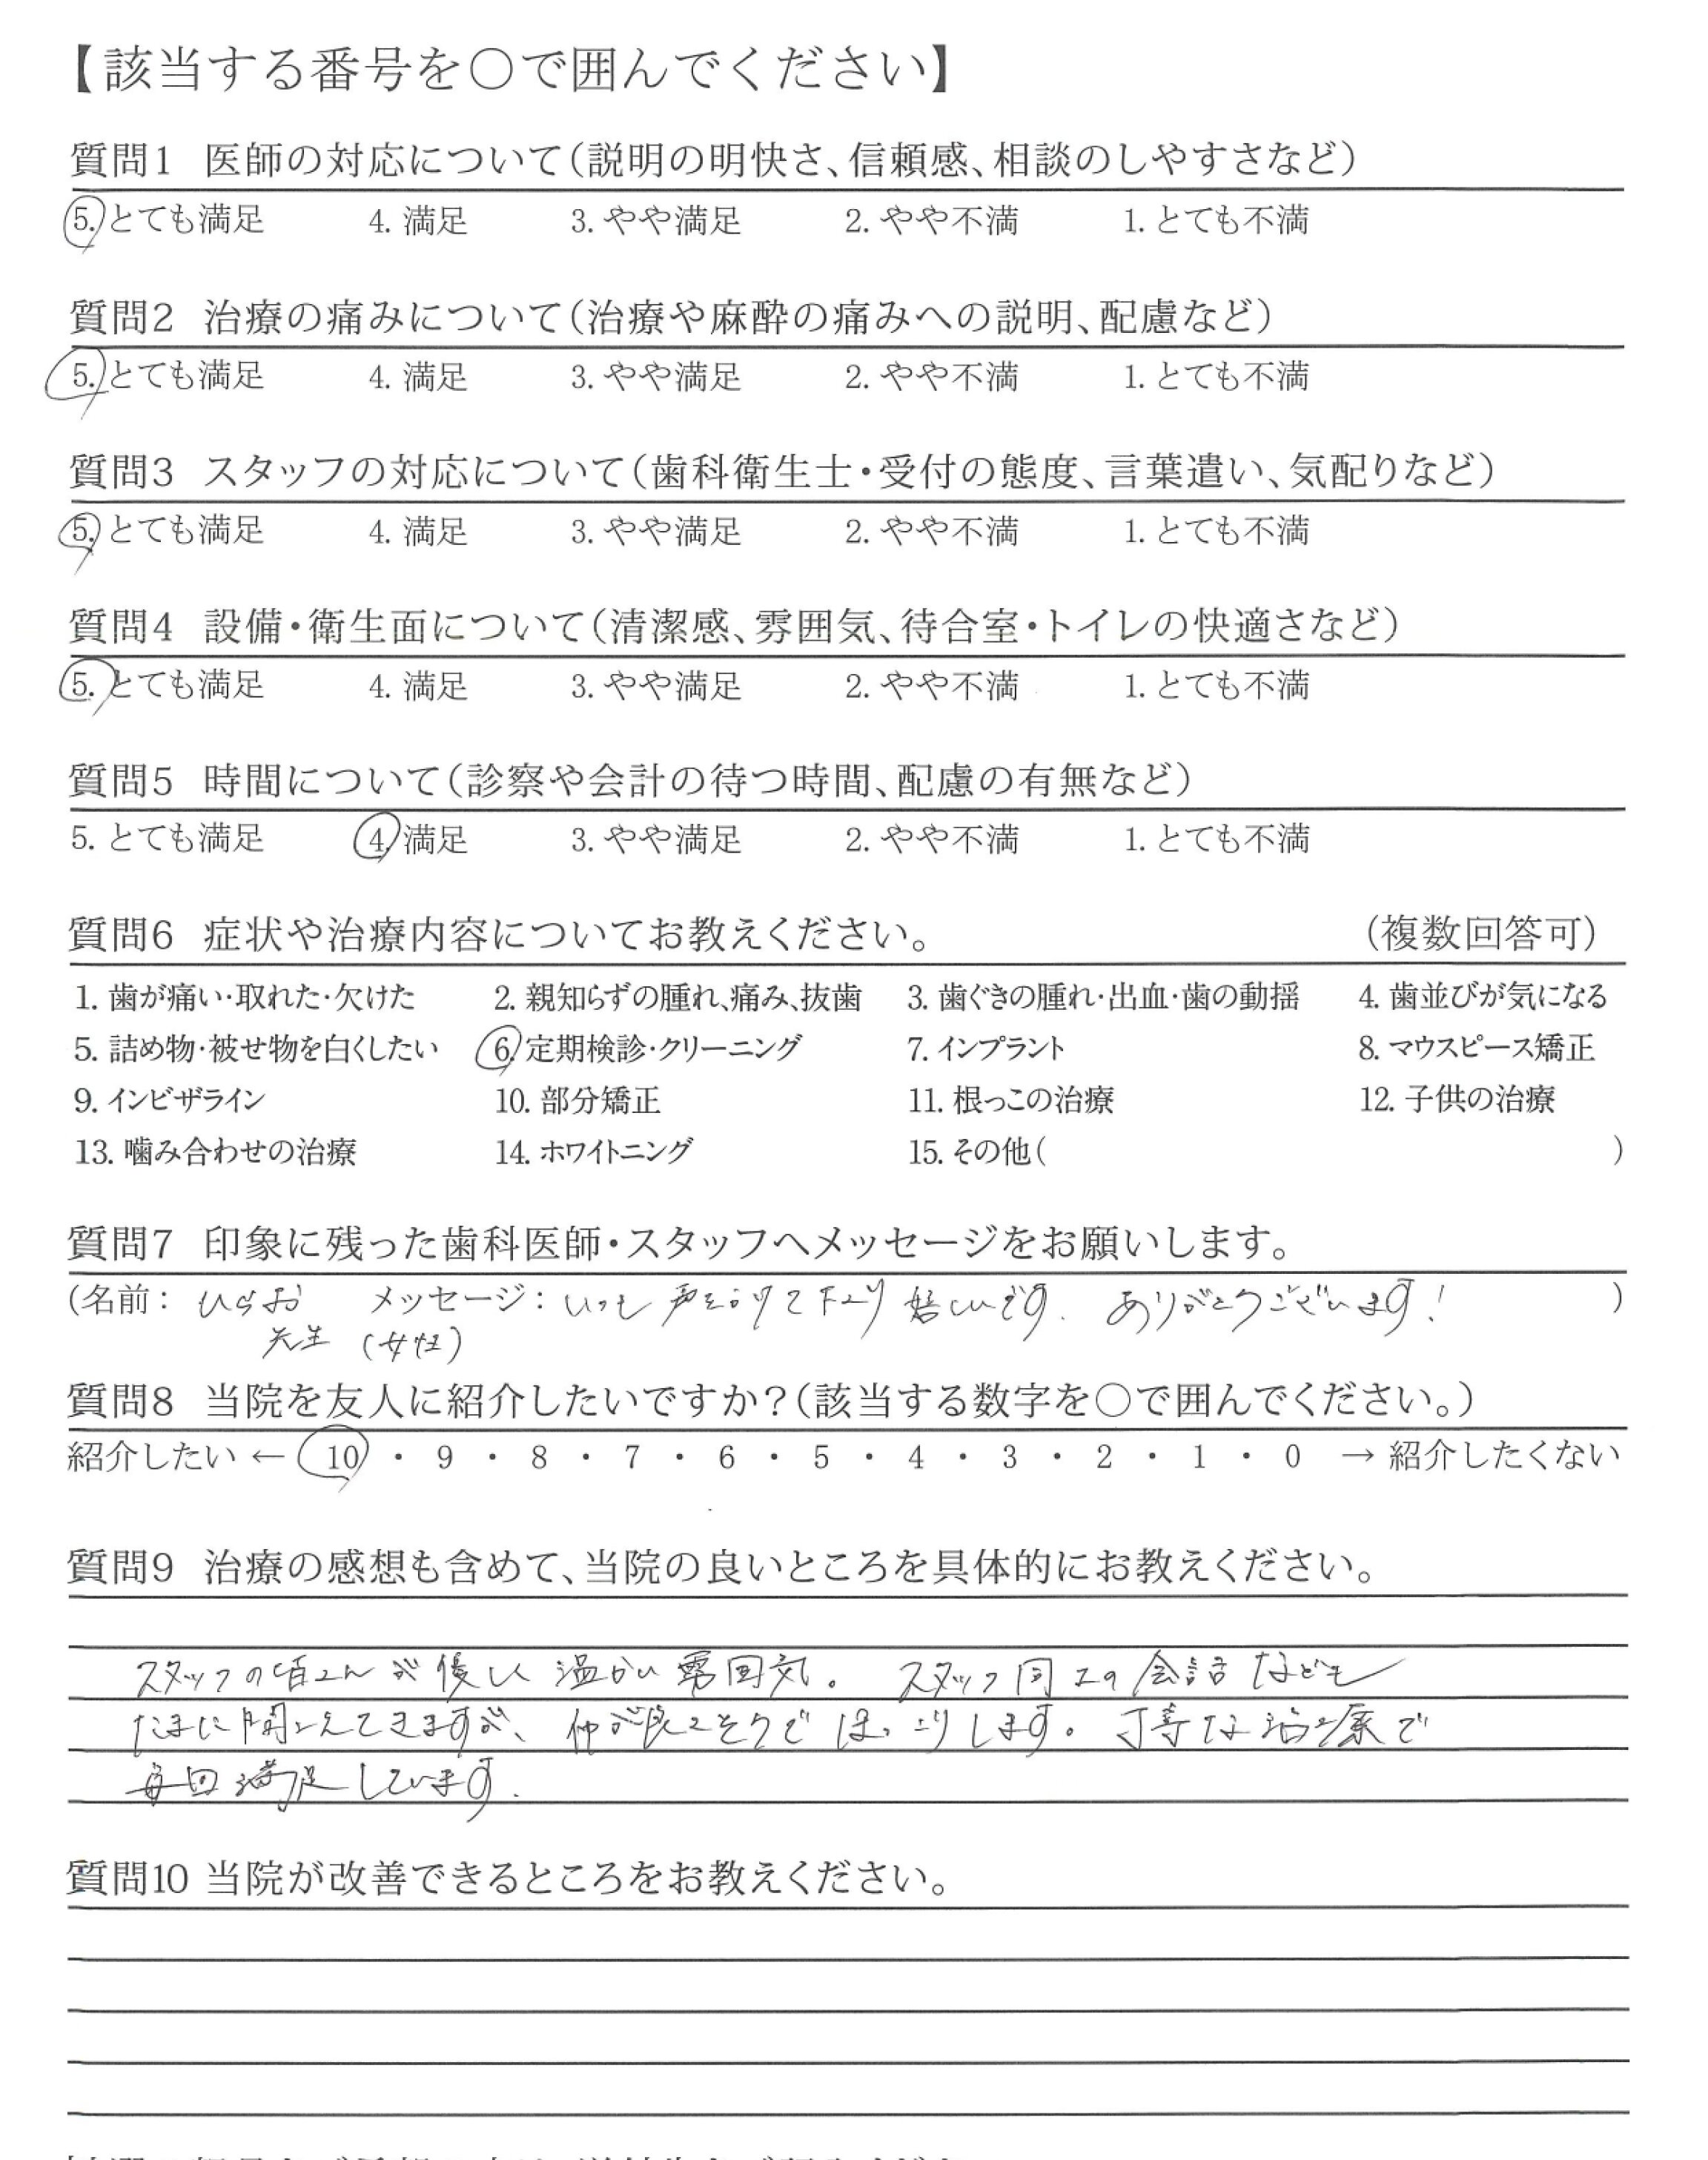 【該当する番号を〇で囲んでください】
質問1 医師の対応について(説明の明快さ、信頼感、相談のしやすさなど)
5. とても満足 4. 満足 3. やや満足 2. やや不満 1. とても不満
質問2 治療の痛みについて(治療や麻酔の痛みへの説明、配慮など)
5. とても満足 4. 満足 3. やや満足 2. やや不満 1. とても不満
質問3 スタッフの対応について(歯科衛生士・受付の態度、言葉遣い、気配りなど)
5. とても満足 4. 満足 3. やや満足 2. やや不満 1. とても不満
質問4 設備・衛生面について(清潔感、雰囲気、待合室・トイレの快適さなど)
5. とても満足 4. 満足 3. やや満足 2. やや不満 1. とても不満
質問5 時間について(診察や会計の待つ時間、配慮の有無など)
5. とても満足 4. 満足 3. やや満足 2. やや不満 1. とても不満
質問6 症状や治療内容についてお教えください。 (複数回答可)
1. 歯が痛い・取れた・欠けた 2. 親知らずの腫れ、痛み、抜歯 3. 歯ぐきの腫れ・出血・歯の動揺 4. 歯並びが気になる
5. 詰め物・被せ物を白くしたい 6. 定期検診・クリーニング 7. インプラント 8. マウスピース矯正
9. インビザライン 10. 部分矯正 11. 根っこの治療 12. 子供の治療
13. 噛み合わせの治療 14. ホワイトニング 15. その他( )
質問7 印象に残った歯科医師・スタッフへメッセージをお願いします。
(名前: ひらお メッセージ: いつも声を掛けて下さり嬉しいです. ありがとうございます! )
先生 (女性)
質問8 当院を友人に紹介したいですか?(該当する数字を〇で囲んでください。)
紹介したい ← 10 ・ 9 ・ 8 ・ 7 ・ 6 ・ 5 ・ 4 ・ 3 ・ 2 ・ 1 ・ 0 → 紹介したくない
質問9 治療の感想も含めて、当院の良いところを具体的にお教えください。
スタッフの皆さんが優しく温かい雰囲気。 スタッフ同士の会話なども
たまに聞こえてきますが、仲が良さそうでほっこりします。丁寧な治療で
毎回満足しています.
質問10 当院が改善できるところをお教えください。